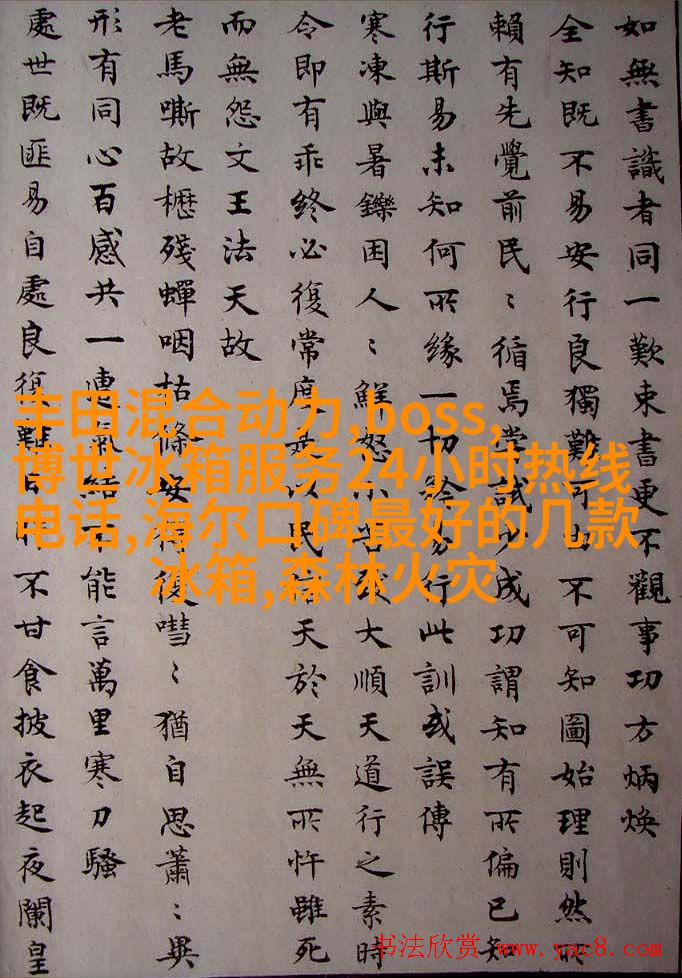 如無書識者同一歎束書更不觀事功方炳焕
全知既不易安行良獨難可由不可知圖始理則然所
賴有先覺前民〻循焉嘗試少成功謂知有所偏已知
行斯易未知何所緣一切易行此訓或誤傳
寒凍與暑鑠困人〻鮮怒小大順天道行之素時
令即有乖終必復常度是以民天於天無所忤雖死
而無怨文王法天故
老馬嘶故櫪殘蟬咽枯條安得復嘒〻猶自思蕭〻異
形有同心百感共一遭氣結不能言萬里寒刀騷
處世既匪易自處良復難日不甘食披衣起夜闌皇
丰田混合动力,boss,
博世冰箱服务24小时热线
电话,海尔口碑最好的几款
冰箱,森林火灾
书法欣赏 www.yac8.com